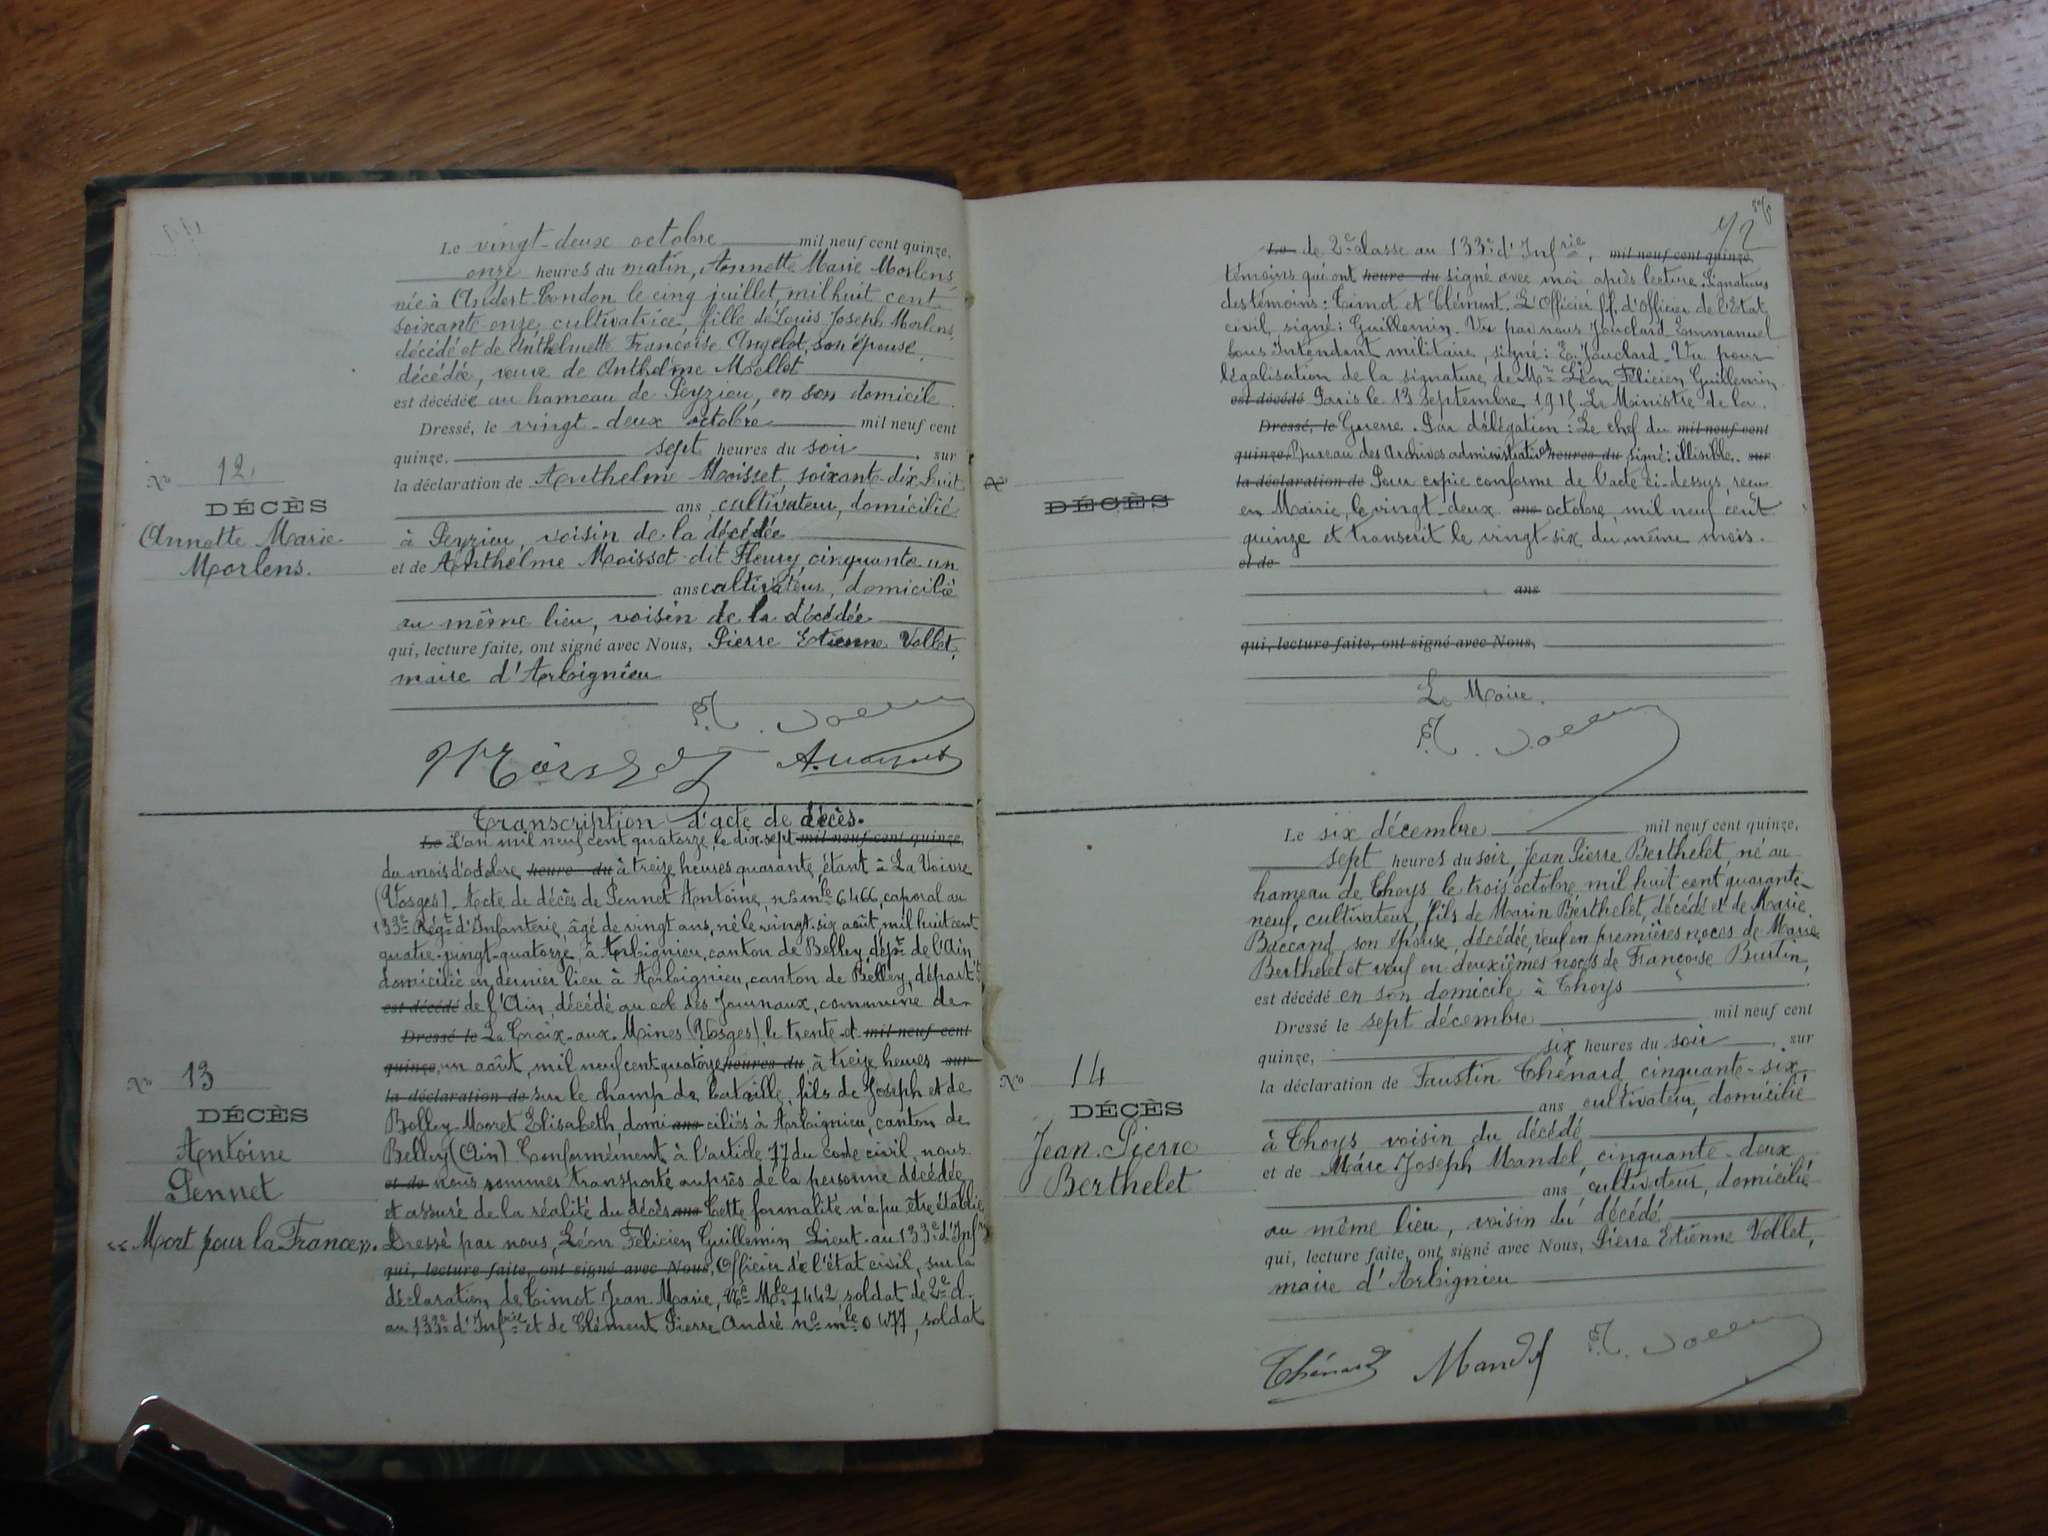 Le vingt-deux octobre mil neuf cent quinze,
onze heures du matin, Annette Marie Morlens,
née à Andert-Condon le cinq juillet, mil huit cent
soixante-onze, cultivatrice, fille de Louis Joseph Morlens,
décédé et de Anthelmette Françoise Angelot, son épouse,
décédée, veuve de Anthelme Mollet
est décédée au hameau de Peyzieu, en son domicile.
Dressé, le vingt-deux octobre mil neuf cent
quinze, sept heures du soir, sur
la déclaration de Anthelme Moisset, soixante-dix-huit
ans, cultivateur, domicilié
à Peyzieu, voisin de la décédée
et de Anthelme Moisset dit Fleury, cinquante-un
ans cultivateur, domicilié
au même lieu, voisin de la décédée
qui, lecture faite, ont signé avec Nous, Pierre Etienne Vollet,
maire d'Arbignieu
No 12.
DÉCÈS
Annette Marie
Morlens.
Transcription d'acte de décès.
Le L'an mil neuf cent quatorze, le dix-sept mil neuf cent quinze,
du mois d'octobre heure du à treize heures quarante, étant à La Voivre
(Vosges). Acte de décès de Pennet Antoine, no mle 6466, caporal au
133e Régt d'Infanterie, âgé de vingt ans, né le vingt-six août, mil huit cent
quatre-vingt-quatorze, à Arbignieu, canton de Belley, dépt de l'Ain
domicilié en dernier lieu à Arbignieu, canton de Belley, départt
est décédé de l'Ain, décédé au col des Journaux, commune de
Dressé le La Croix-aux-Mines (Vosges), le trente et mil neuf cent
quinze, un août, mil neuf cent quatorze heures du, à treize heures sur
la déclaration de sur le champ de bataille, fils de Joseph et de
Bolley-Moret Elisabeth, domi ans ciliés à Arbignieu, canton de
Belley (Ain). Conformément à l'article 77 du code civil, nous
et de nous sommes transporté auprès de la personne décédée
et assuré de la réalité du décès ans Cette formalité n'a pu être établie
Dressé par nous, Léon Félicien Guillemin Lieut. au 133e d'Infrie
qui, lecture faite, ont signé avec Nous, Officier de l'état civil, sur la
déclaration de Timot Jean Marie, No Mle 7442, soldat de 2e cl.
au 133e d'Infrie et de Clément Pierre André no mle 0477, soldat
No 13
DÉCÈS
Antoine
Pennet
"Mort pour la France".
72
Le de 2e classe au 133e d'Infrie, mil neuf cent quinze,
témoins qui ont heure du signé avec moi après lecture. Signatures
des témoins: Timot et Clément. L'Officier ff. d'Officier de l'Etat
civil, signé: Guillemin. Vu par nous Jouclard Emmanuel
Sous Intendant militaire, signé: E. Jouclard. Vu pour
légalisation de la signature de Mr Léon Félicien Guillemin
est décédé Paris le 13 Septembre 1915. Le Ministre de la
Dressé, le Guerre. Par délégation: Le chef du mil neuf cent
quinze, Bureau des Archives administratives heures du signé: illisible. sur
la déclaration de Pour copie conforme de l'acte ci-dessus, reçu
en Mairie, le vingt-deux ans octobre, mil neuf cent
quinze et transcrit le vingt-six du même mois.
et de
ans
qui, lecture faite, ont signé avec Nous,
Le Maire.
No
DÉCÈS
Le six décembre mil neuf cent quinze,
sept heures du soir, Jean Pierre Berthelet, né au
hameau de Thoys le trois octobre, mil huit cent quarante-
neuf, cultivateur, fils de Marin Berthelet, décédé et de Marie
Baccand, son épouse, décédée, veuf en premières noces de Marie
Berthelet et veuf en deuxièmes noces de Françoise Burtin,
est décédé en son domicile à Thoys
Dressé le sept décembre mil neuf cent
quinze, six heures du soir, sur
la déclaration de Faustin Thénard, cinquante-six
ans, cultivateur, domicilié
à Thoys voisin du décédé
et de Marc Joseph Mandel, cinquante-deux
ans, cultivateur, domicilié
au même lieu, voisin du décédé
qui, lecture faite, ont signé avec Nous, Pierre Etienne Vollet,
maire d'Arbignieu
Thénard Mandel
No 14
DÉCÈS
Jean-Pierre
Berthelet